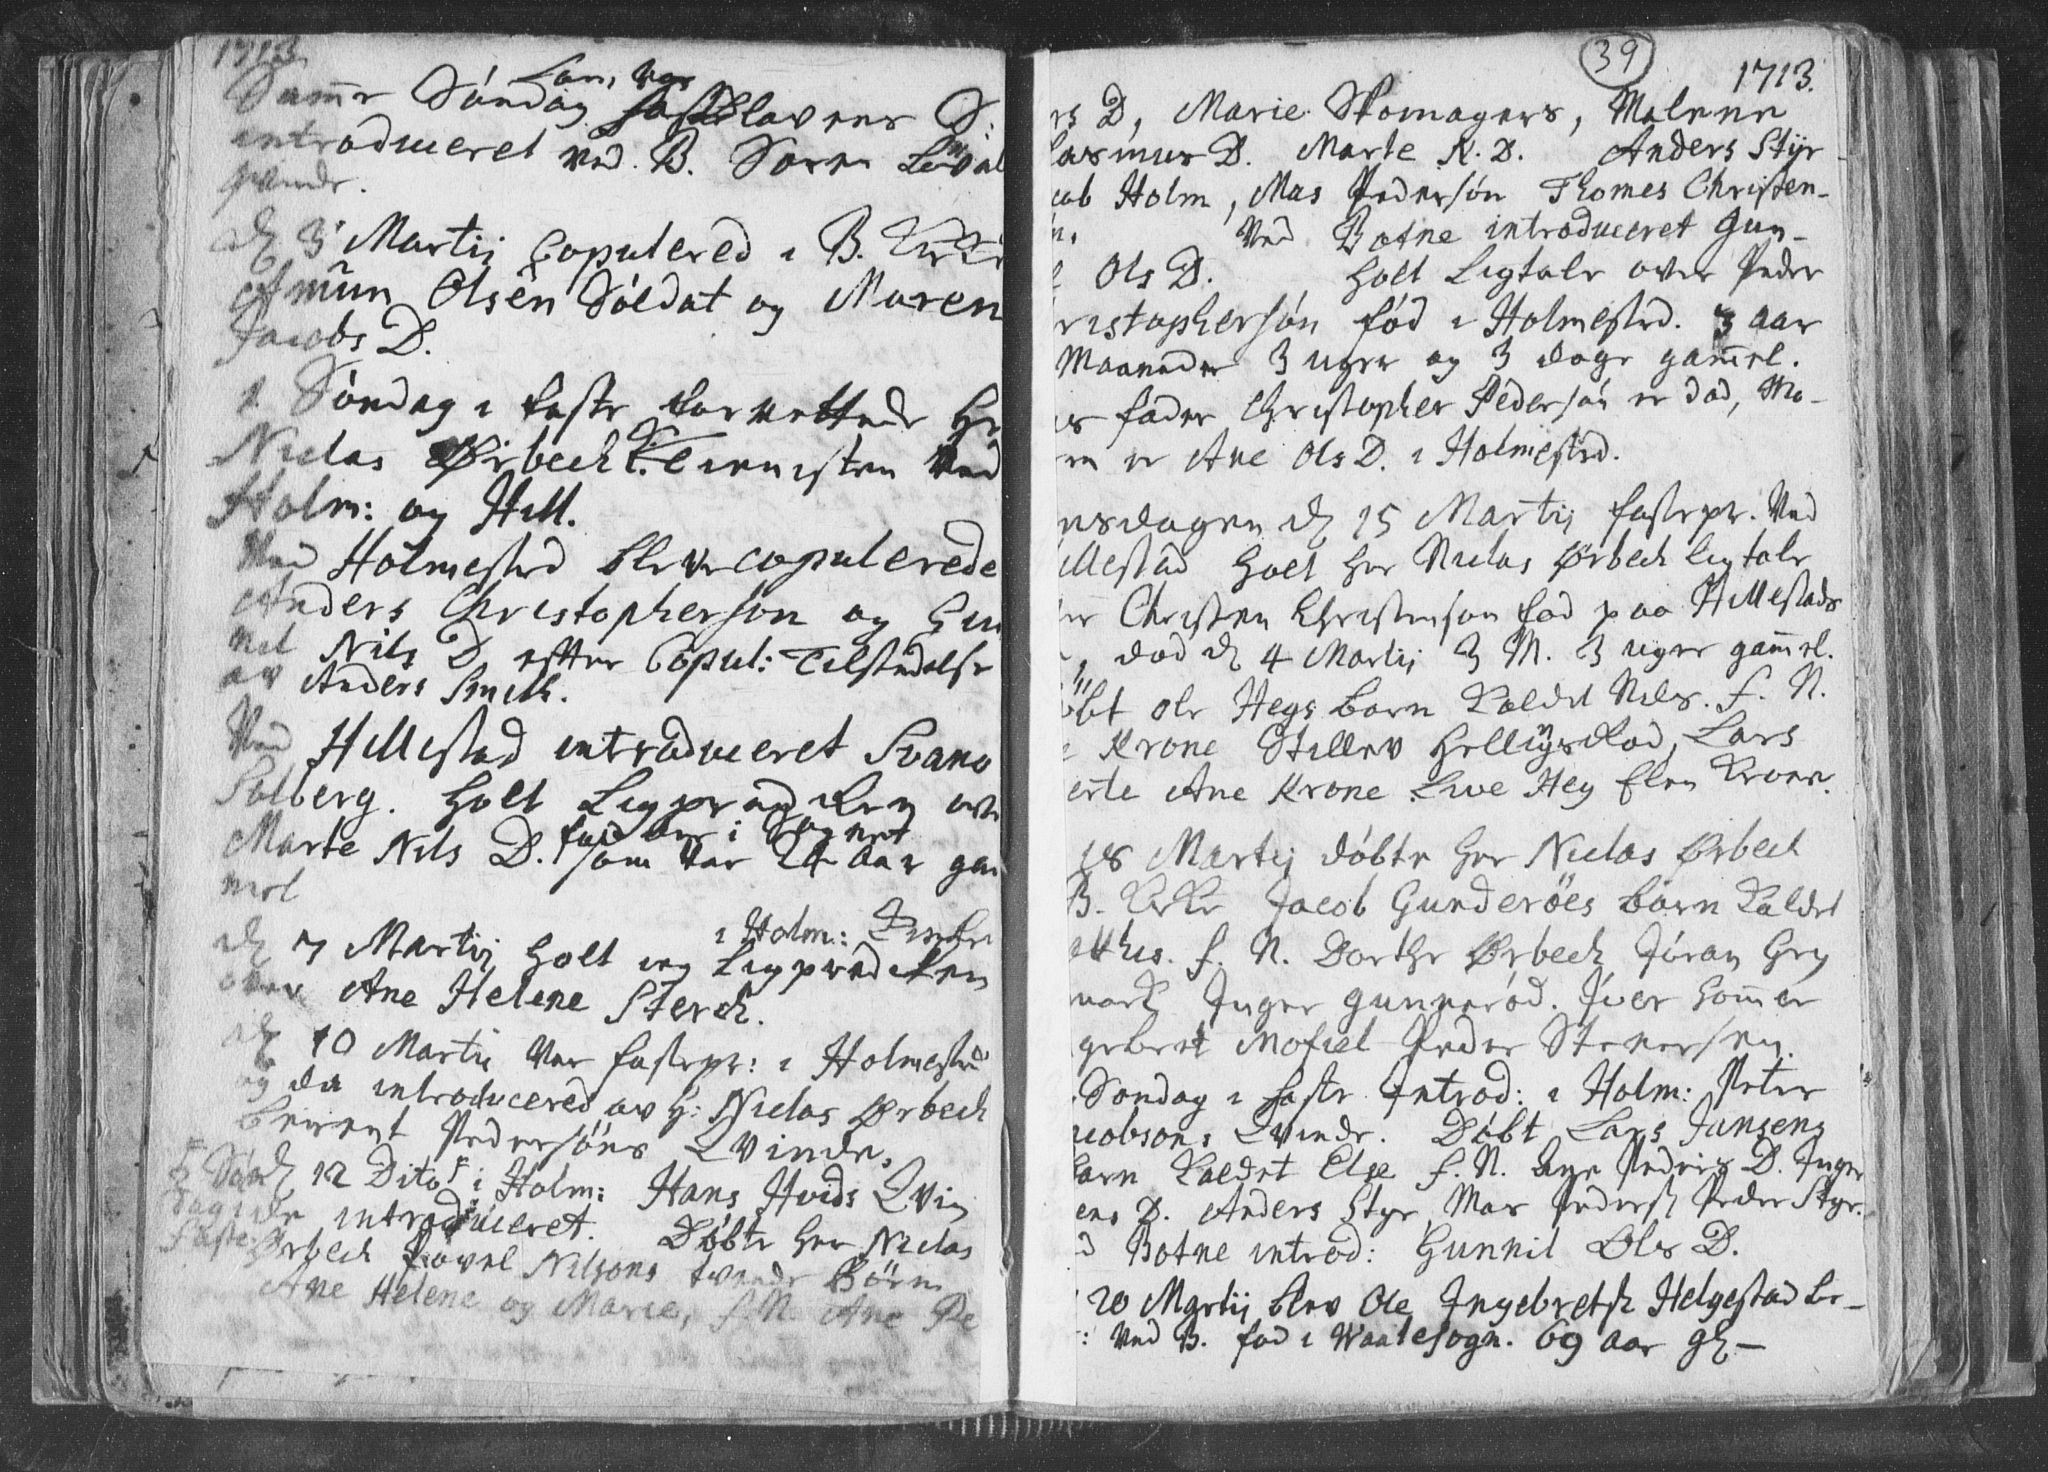 1713
Samme Søndag som var fastelavens S:
introduceret ved B. Søren
qvinde.
dh 3 Martij Copulered i B. Kirke
Amun Olsen Soldat og Maren
Jacobs D.
1 Søndag i faste forrettede Hr
Niclas Ørbech tienisten ved
Holm: og Hill.
Ved Holmestrd bleve copulerede
Anders Christophersøn og Gun
nil Nils D. efter Copul: Tilstedelse
av Anders Smith.
Ved Hillestad introduceret Svano
Solberg. holt Ligprædiken ove
Marte Nils D. fød her i Sognet som var 24 Aar gam
mel
dh 7 Martij holt ieg Ligprædiken i Holm: Kirke
over Ane Helene Sterch.
dh 10 Martij var fastepr: i Holmestrd
og da introducered av H: Niclas Ørbech
Berent Pedersøns Qvinde.
dh 12 Dito i Holm: Hans Hvids Qvin
de introduceret. Døbte Her Niclas
Ørbech Povel Nilsøns tvende Børn
Ane Helene og Marie, f. N. Ane Pe
2 Søn
dag i
Faste.
39
1713.
rs D, Marie Skomagers, Malene
asmus D. Marte R. D. Anders Styr
cob Holm, Mas Pedersøn Thomes Christen-
n. Ved Botne introduceret Gun-
l Ols D. holt Ligtale over Peder
ristophersøn fød i Holmestrd. 3 aar
Maaneder 3 uger og 3 dage gammel.
s fader Christopher Pedersøn er død, Mo-
en er Ane Ols D. i Holmestrd.
nsdagen dh 15 Martij fastepr. Ved
illestad holt her Niclas Ørbech ligtale
er Christen Christensøn fød paa Hillestads
, død dh 4 Martij 3 M. 3 uger gammel.
øbt Ole Hegs barn kaldet Nils. f. N.
e Krone Stillev Helligsrød, Lars
erte Ane Krone Live Heg Elen Krone.
18 Martij døbte her Niclas Ørbech
B. Kirke Jacob Gunderöes barn kaldet
atthis. f. N. Dorthe Ørbech Jöran Gry
mark Inger gunnerød. Iver hommer
gebret Mofiel Peder Stenersen.
Søndag i faste Introd: i Holm: Peter
acobsøns Qvinde. Døbt Lars Jansens
barn kaldet Else f. N. Aase Peders D. Inger
ens D. Anders Styr, Mas Pedersh Peder Styr.
d Botne introd: Gunnil Ols D.
20 Martij blev Ole Ingebretsh Helgestad be-
: ved B. fød i Waalesogn. 69 aar gh-